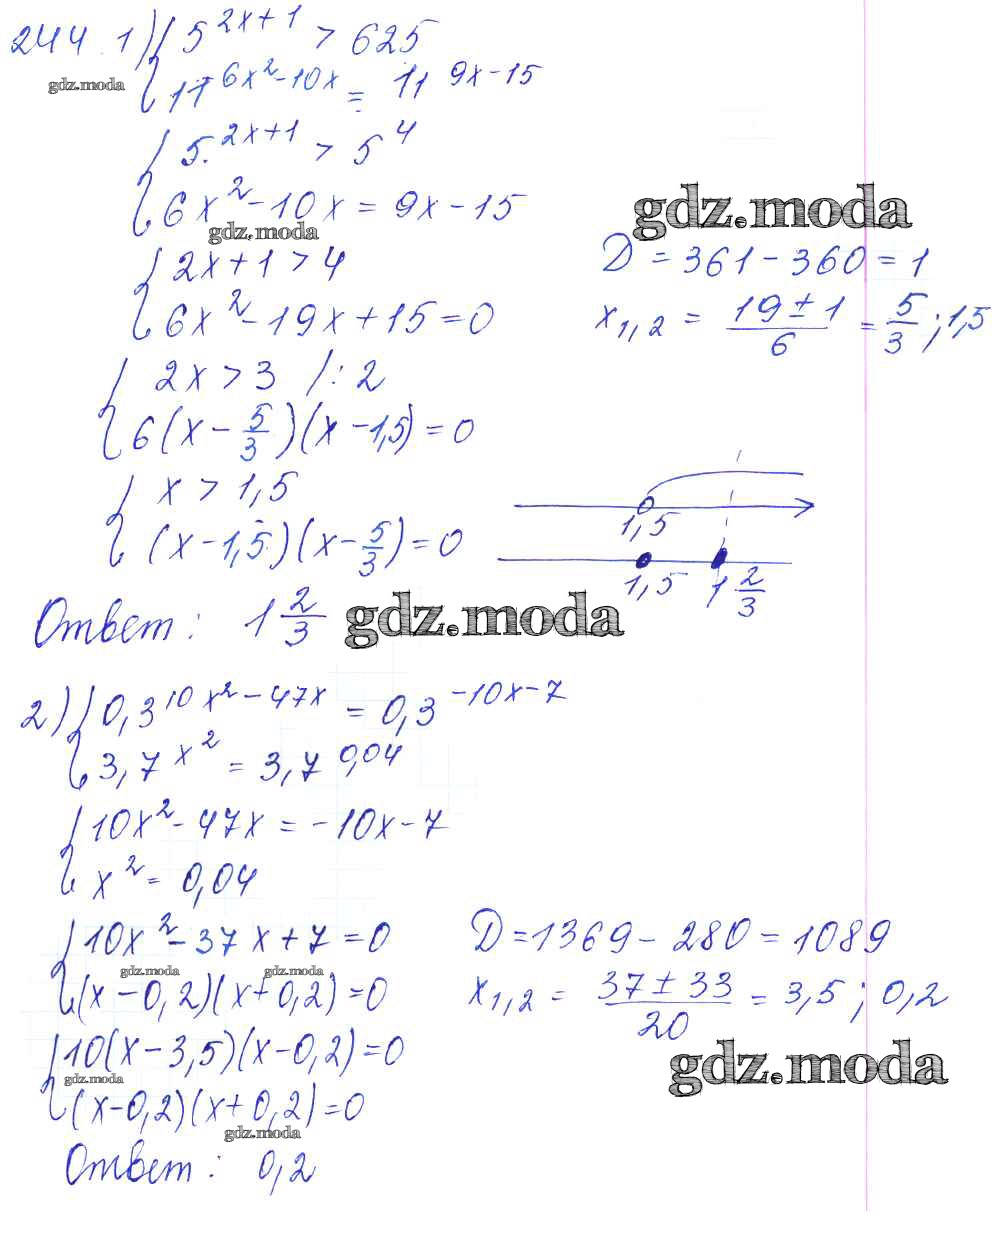 244. 1) { 5^{2x+1} > 625
gdz.moda
11^{6x²-10x} = 11^{9x-15}
{ 5^{2x+1} > 5^4
6x² - 10x = 9x - 15
gdz.moda
gdz.moda
{ 2x + 1 > 4
6x² - 19x + 15 = 0
D = 361 - 360 = 1
x_{1,2} = \frac{19 ± 1}{6} = \frac{5}{3}; 1,5
{ 2x > 3 /: 2
6(x - \frac{5}{3})(x - 1,5) = 0
{ x > 1,5
(x - 1,5)(x - \frac{5}{3}) = 0
1,5
1,5 1\frac{2}{3}
Ответ: 1\frac{2}{3}
gdz.moda
2) { 0,3^{10x² - 47x} = 0,3^{-10x-7}
3,7^{x²} = 3,7^{0,04}
{ 10x² - 47x = -10x - 7
x² = 0,04
{ 10x² - 37x + 7 = 0
gdz.moda gdz.moda
(x - 0,2)(x + 0,2) = 0
D = 1369 - 280 = 1089
x_{1,2} = \frac{37 ± 33}{20} = 3,5; 0,2
gdz.moda
{ 10(x - 3,5)(x - 0,2) = 0
gdz.moda
(x - 0,2)(x + 0,2) = 0
gdz.moda
Ответ: 0,2